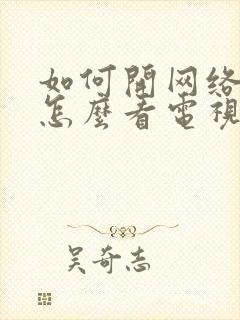 如何開网络
怎麼看電視
吴奇志